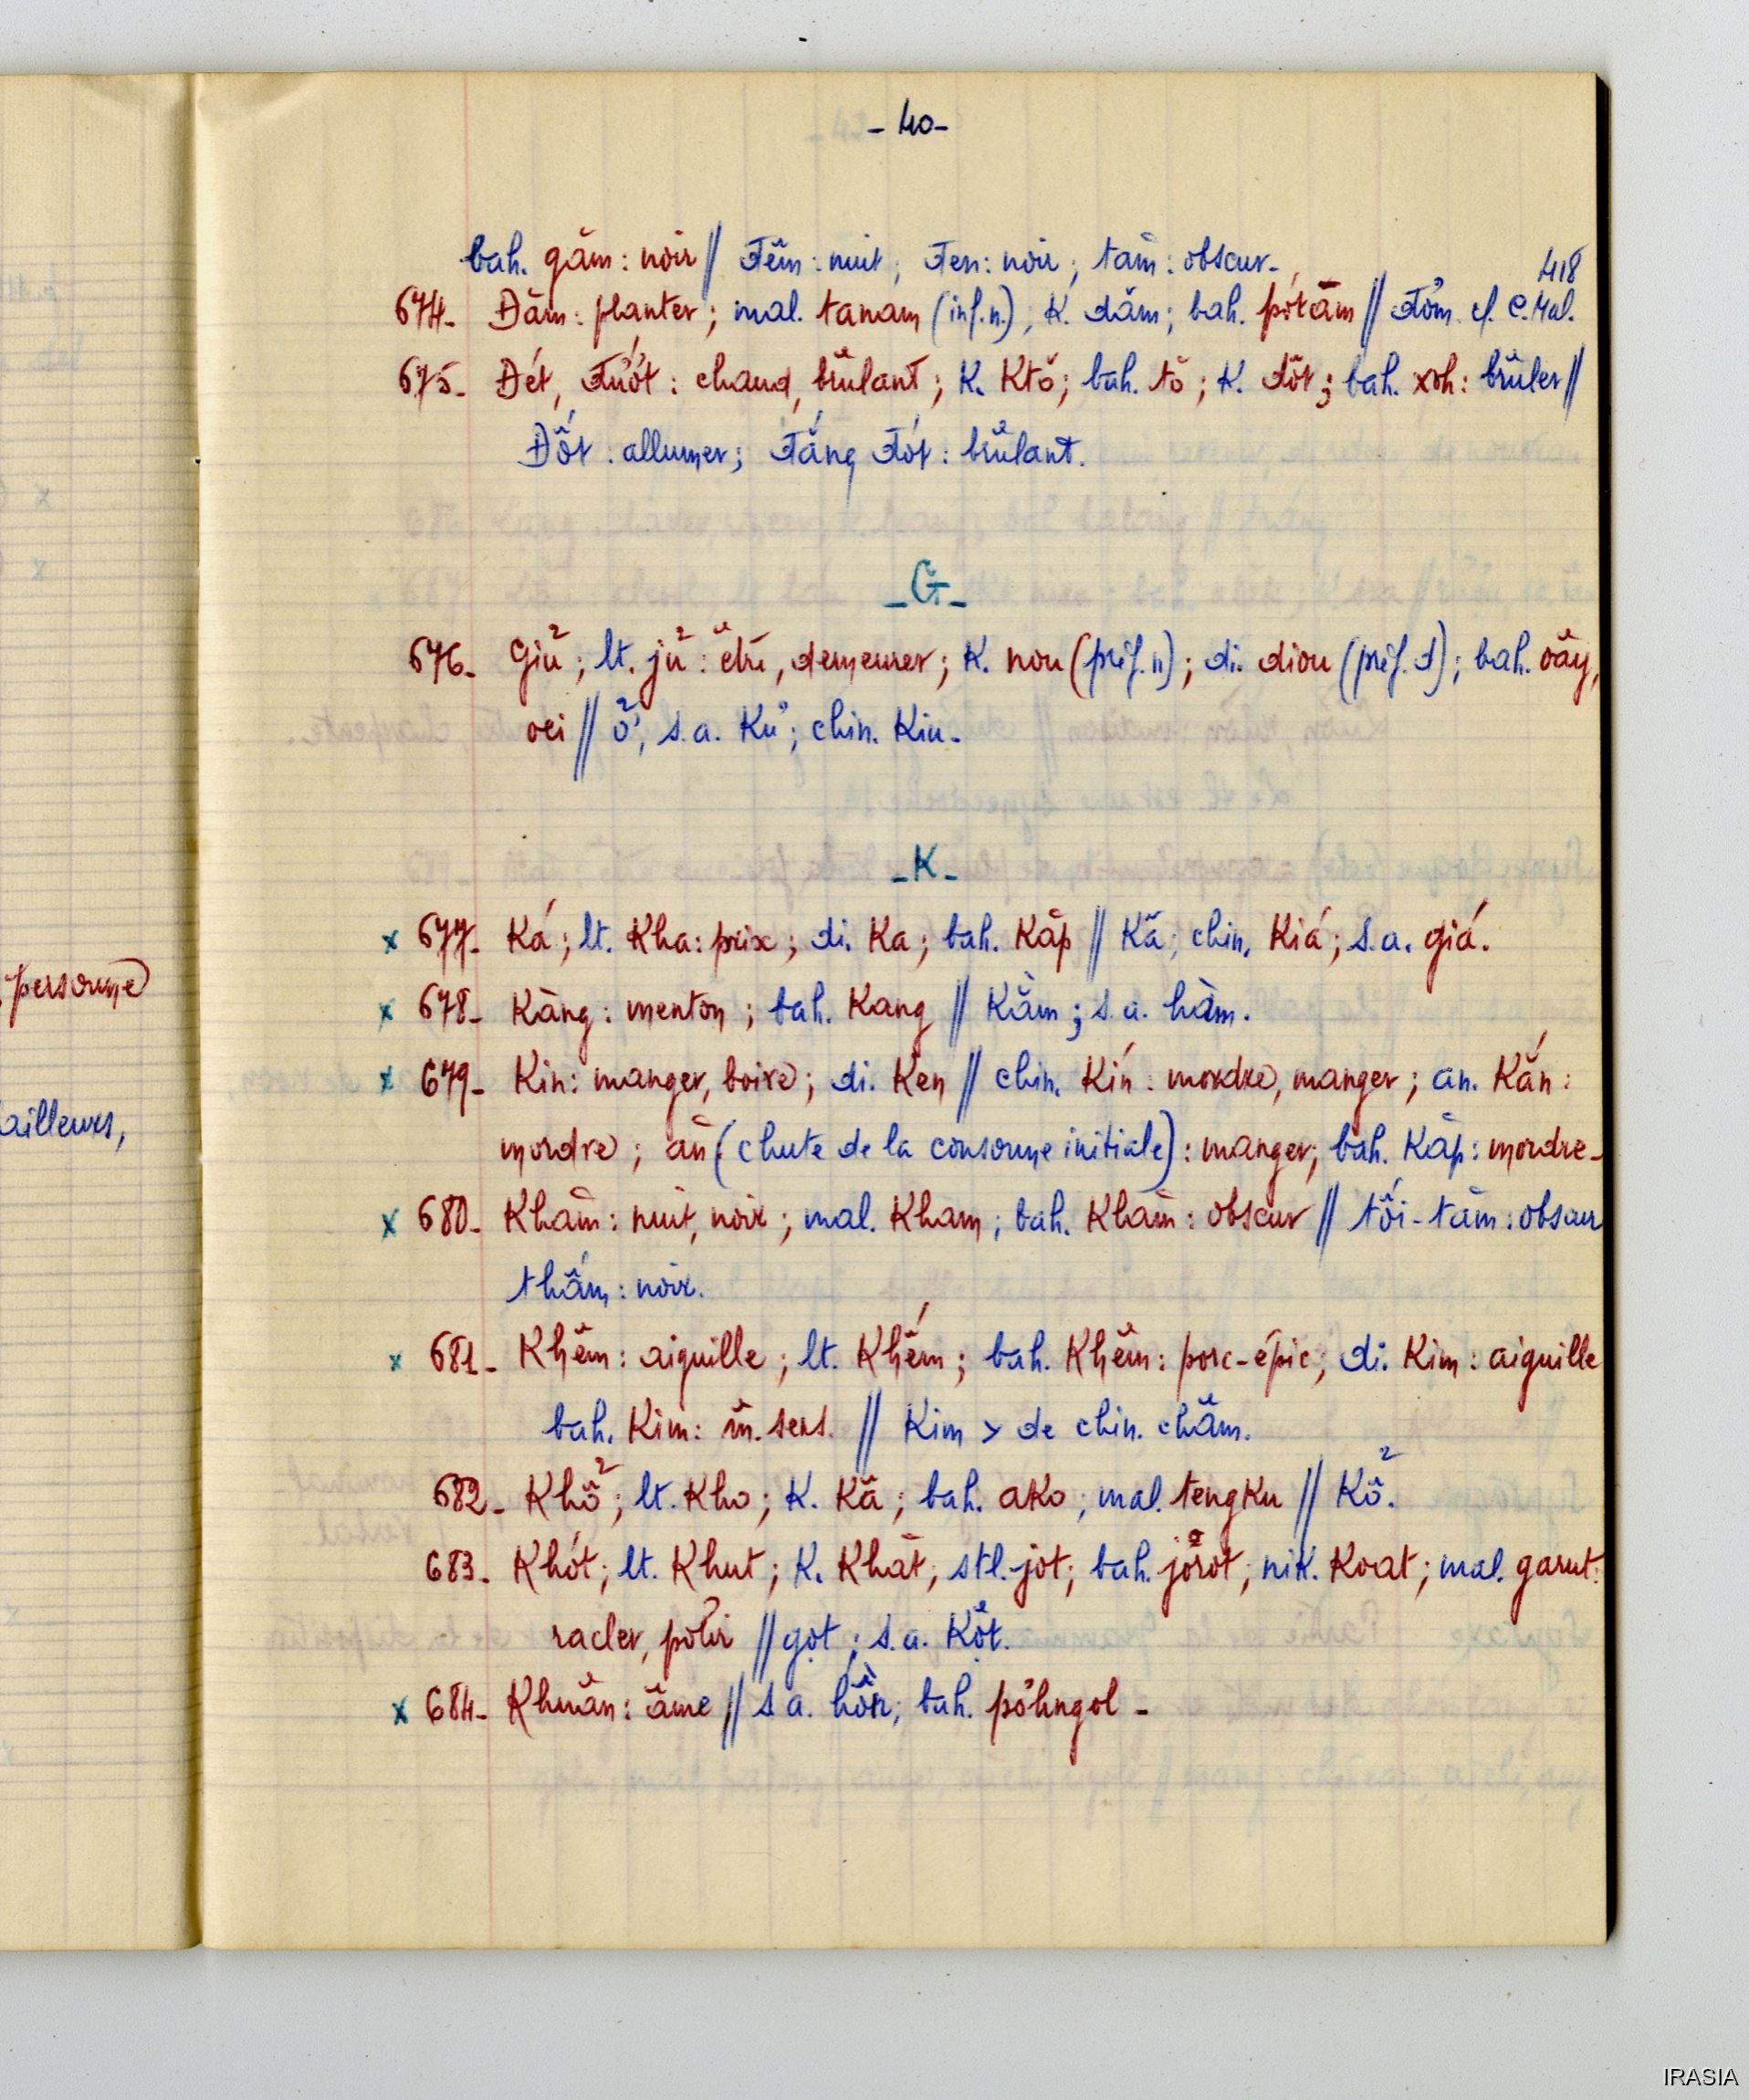 - 40 -
418
bah. găm : noir // đêm : nuit ; đen : noir ; tăm : obscur -
674- Đăm : planter ; mal. tanam (inf. n.) ; K. dăm ; bah. pơtăm // đơm cf. C. Mal.
675- Đét, đướt : chaud, brûlant ; K. Ktŏ ; bah. tŏ ; K. dŏt ; bah. xoh : brûler //
Đốt : allumer ; đắng đót : brûlant.
- G -
676- Giủ ; lt. jủ : être, demeurer ; K. nou (préf. n) ; di. diou (préf. d) ; bah. oăy,
oei // ở, s.a. Kư ; chin. Kiu -
- K -
x 677- Ká ; lt. Kha : prix ; di. Ka ; bah. Kăp // Kă ; chin. Kiá ; s.a. giá.
x 678- Kàng : menton ; bah. Kang // Kằm ; s.a. hàm.
x 679- Kin : manger, boire ; di. Ken // chin. Kín : mordre, manger ; an. Kắn :
mordre ; ăn (chute de la consonne initiale) : manger ; bah. Kăp : mordre -
x 680- Khăm : nuit, noir ; mal. Kham ; bah. Khăm : obscur // tối-tăm : obscur
thâm : noir.
x 681- Khêm : aiguille ; lt. Khếm ; bah. Khêm : porc-épic ; di. Kim : aiguille
bah. Kim : m. sens. // Kim > de chin. châm.
682- Khổ ; lt. Kho ; K. Kă ; bah. ako ; mal. tengku // Kổ.
683- Khót ; lt. Khut ; K. Khăt ; stl. jot ; bah. jơrot ; nik. Koat ; mal. garut :
racler, polir // gọt ; s.a. Kột.
x 684- Khuân : âme // s.a. hồn ; bah. pơhngol -
personne
ailleurs,
IRASIA